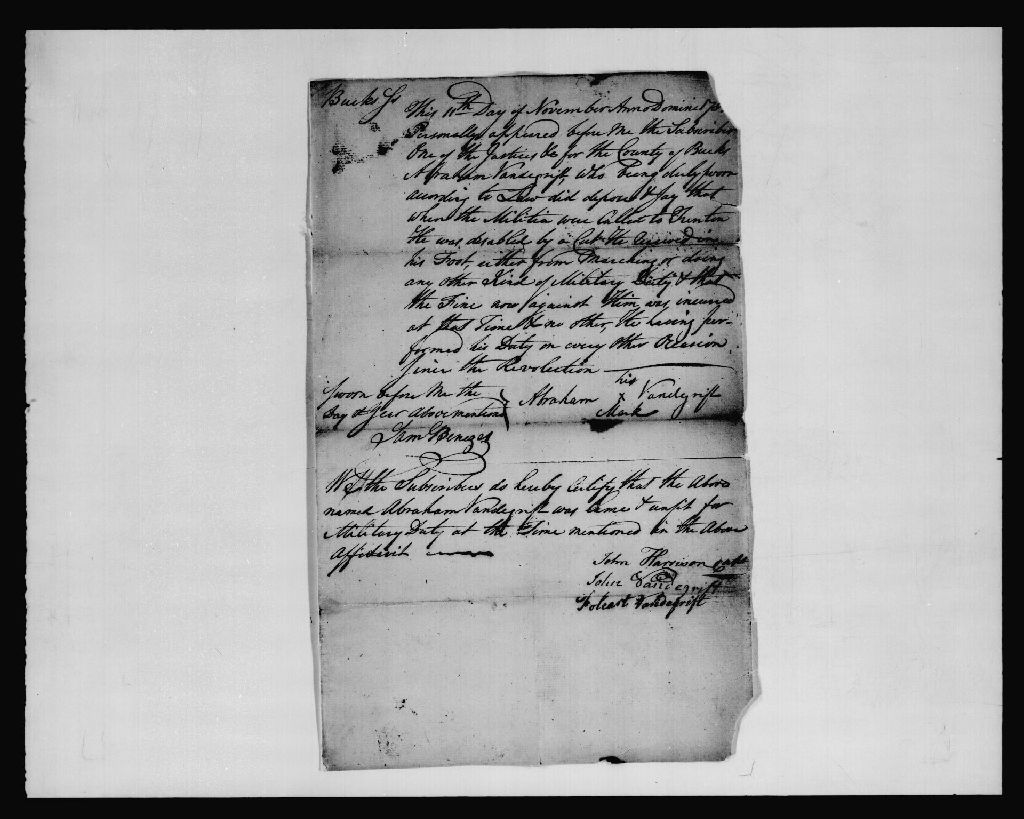 Bucks Ss
This 11th Day of November Anno Domini
Personally appeared before Me the Subscriber
One of the Justices &c for the County of Bucks
Abraham Vandegrift, Who being duly sworn
according to Law did depose & say that
when the Militia were Called to Trenton
He was disabled by a Cut He received in
his Foot, either from Marching or doing
any other Kind of Military Duty & that
the Fine now against Him, was incurred
at that Time & no other, He having per-
formed his Duty on every Other Occasion
since the Revolution
Sworn before Me the
Day & Year abovementioned
Abraham his x Mark Vandegrift
Sam Benezet
We the Subscribers do hereby Certify that the Above
named Abraham Vandegrift was lame & unfit for
Military Duty at the Time mentioned in the Above
Affidavit
John Harrison Capt
John Vandegrift
Folcart Vandegrift